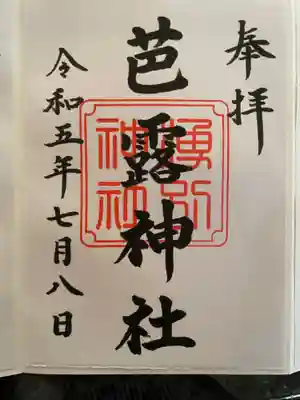 奉拝
芭露神社
湧別神社
令和五年七月八日